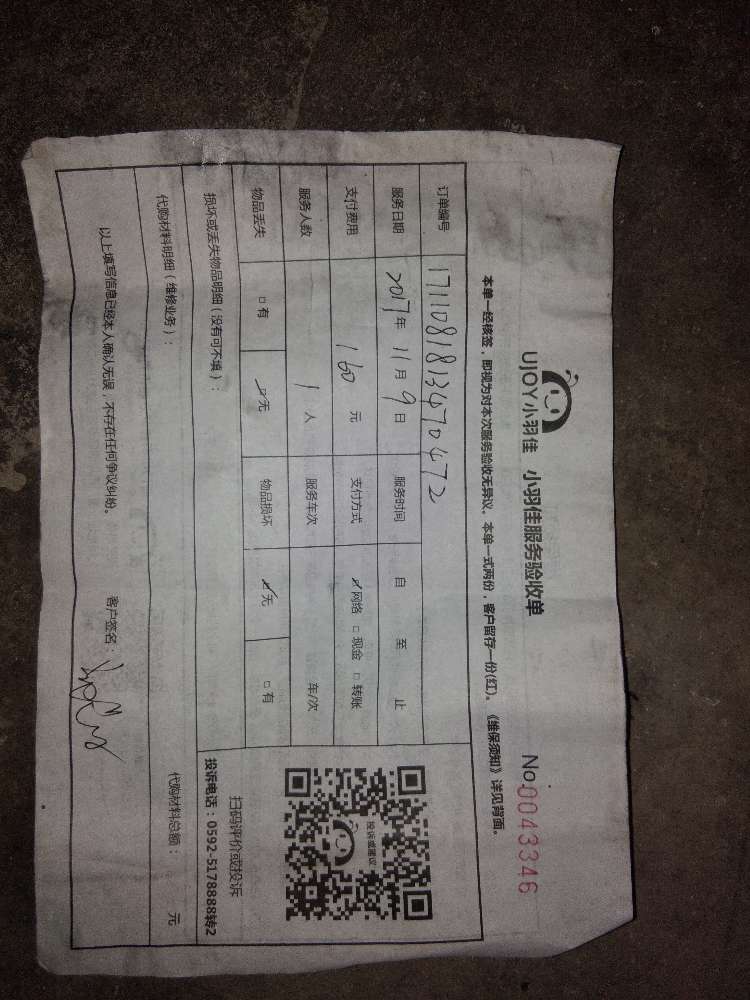 UJOY小羽佳 小羽佳服务验收单 No.0043346
本单一经核签，即视为对本次服务验收无异议。本单一式两份，客户留存一份(红)。《维保须知》详见背面。
订单编号 1711081813470472
服务日期 2017年 11月 9日 服务时间 自 至 止
支付费用 160 元 支付方式 ☑网络 □现金 □转账
服务人数 1 人 服务车次 车/次
物品丢失 □有 ☑无 物品损坏 ☑无 □有
损坏或丢失物品明细（没有可不填）：
投诉或建议
扫码评价或投诉
投诉电话：0592-5178888转2
代购材料明细（维修业务）：
代购材料总额： 元
以上填写信息已经本人确认无误，不存在任何争议纠纷。
客户签名：